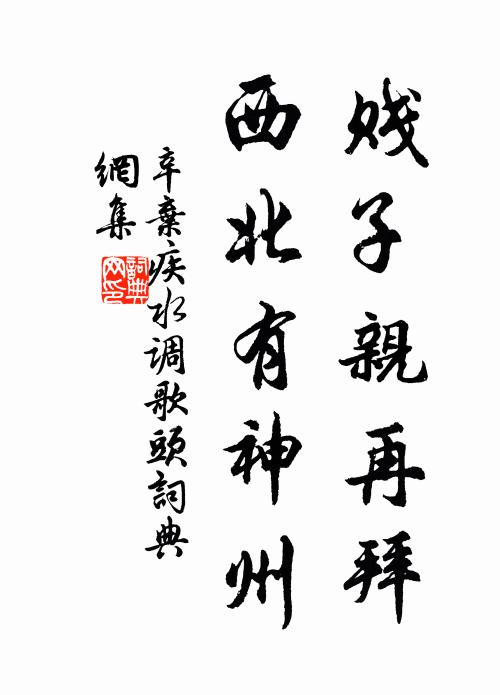 贱子親再拜
西北有神州
辛棄疾水调歌頭詞典
網集
詞典
网印